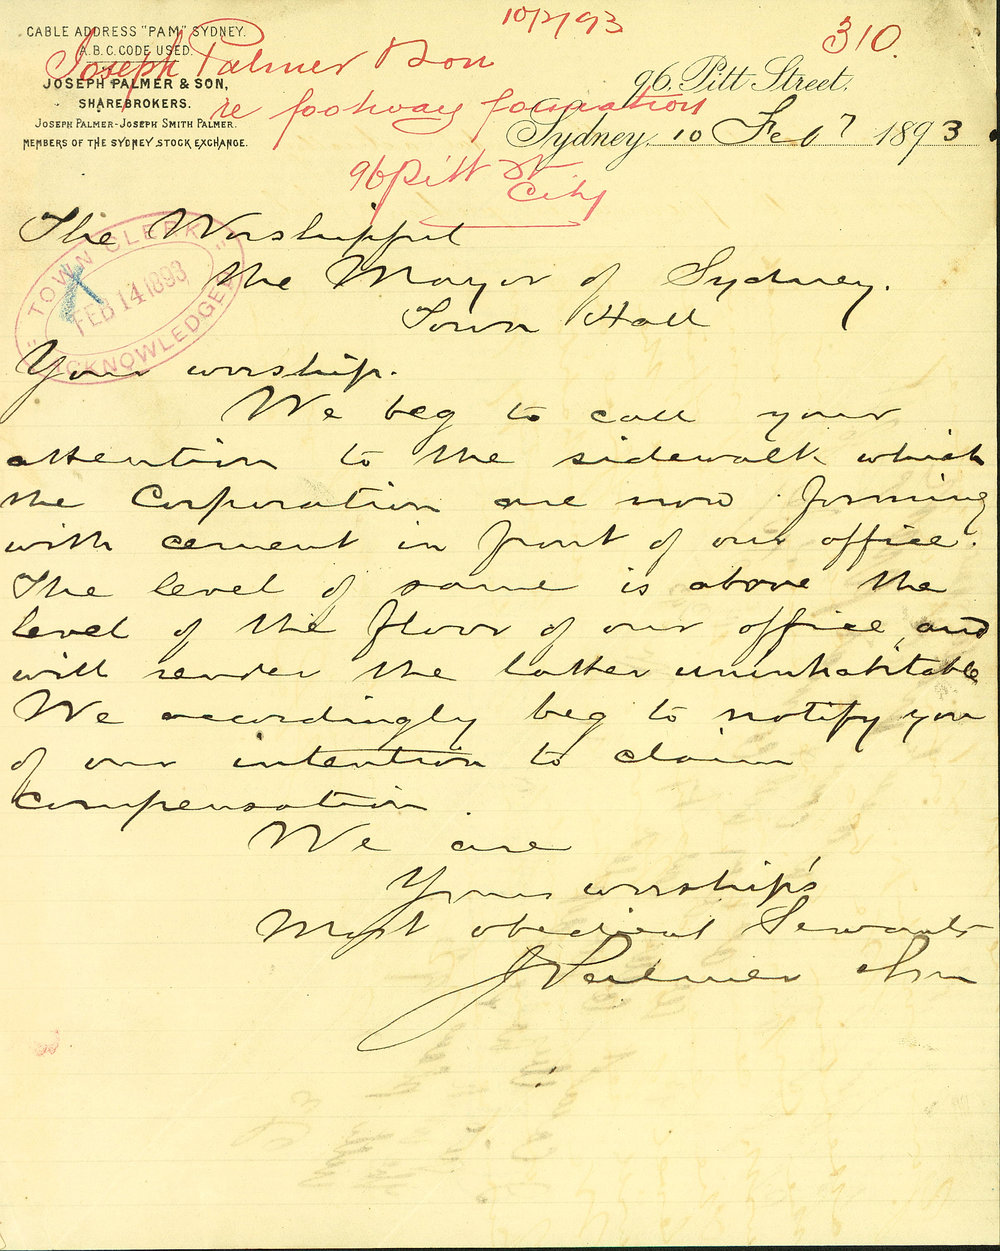 10/2/93
310
CABLE ADDRESS "PAM" SYDNEY.
A.B.C. CODE USED.
JOSEPH PALMER & SON,
SHAREBROKERS.
JOSEPH PALMER - JOSEPH SMITH PALMER.
MEMBERS OF THE SYDNEY STOCK EXCHANGE.
Joseph Palmer & Son
re footway formation
96 Pitt St
City
96, Pitt Street,
Sydney, 10 Feby 1893
TOWN CLERK
FEB 14 1893
ACKNOWLEDGED
The Worshipful
the Mayor of Sydney.
Town Hall
Your worship.
We beg to call your
attention to the sidewalk which
the Corporation are now forming
with cement in front of our office.
The level of same is above the
level of the floor of our office, and
will render the latter uninhabitable
We accordingly beg to notify you
of our intention to claim
compensation.
We are
Your worship's
Most obedient Servants
J Palmer & Son